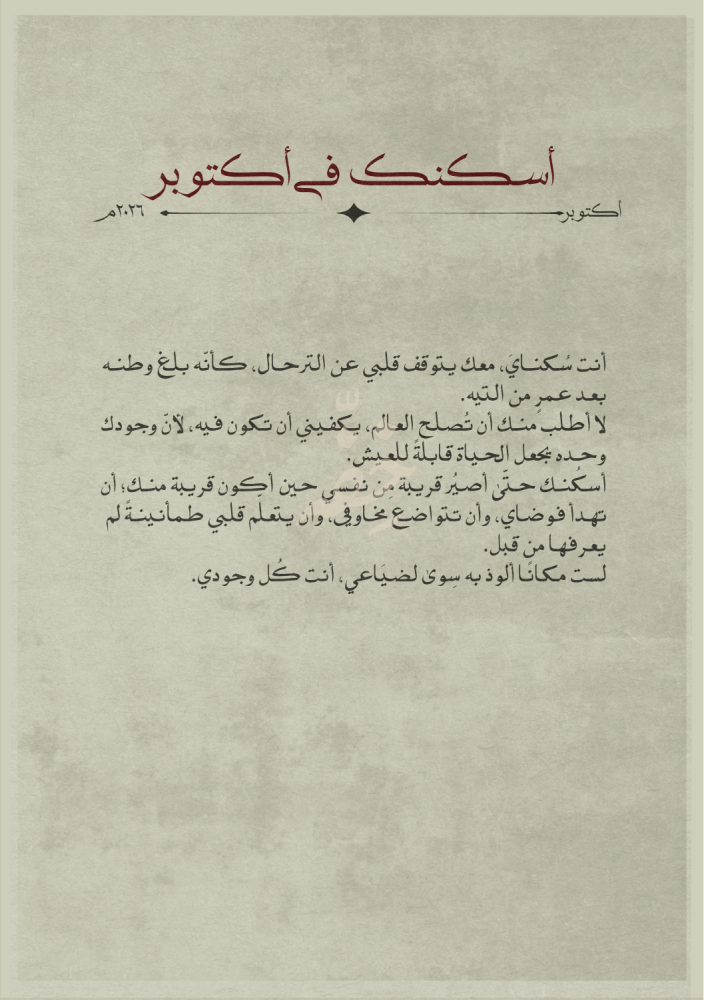 أسكنك في أكتوبر
اكتوبر ٢٠٢٦م
أنت سُكنايَ، معك يتوقف قلبي عن الترحال، كأنّه بلغ وطنه
بعد عمرٍ من التيه.
لا أطلب منك أن تُصلح العالم، يكفيني أن تكون فيه، لأنّ وجودك
وحده يجعل الحياة قابلةً للعيش.
أسكُنك حتّىٰ أصيُر قريبة مِن نفسي حين أكون قريبة منك؛ أن
تهدأ فوضاي، وأن تتواضع مخاوفي، وأن يتعلّم قلبي طمأنينةً لم
يعرفها من قبل.
لست مكانًا ألوذ به سِوىٰ لضيَاعي، أنت كُل وجودي.